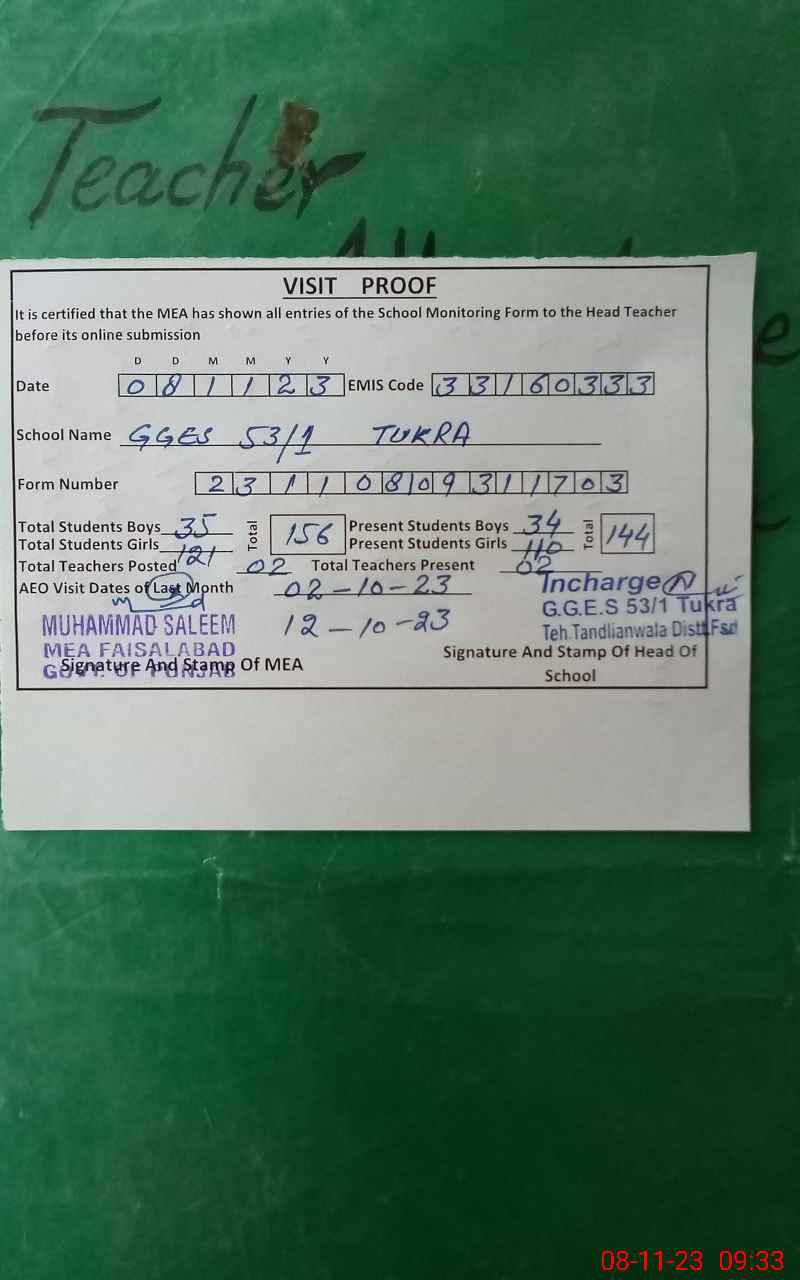 Teacher
VISIT PROOF
It is certified that the MEA has shown all entries of the School Monitoring Form to the Head Teacher
before its online submission
D D M M Y Y
Date 0 8 1 1 2 3 EMIS Code 3 3 1 6 0 3 3 3
School Name GGES 53/1 TUKRA
Form Number 2 3 1 1 0 8 0 9 3 1 1 7 0 3
Total Students Boys 35 Total 156 Present Students Boys 34 Total 144
Total Students Girls 121 Present Students Girls 110
Total Teachers Posted 02 Total Teachers Present 02
AEO Visit Dates of Last Month 02-10-23
12-10-23
MUHAMMAD SALEEM
MEA FAISALABAD
GOVT. OF PUNJAB
Signature And Stamp Of MEA
Incharge
G.G.E.S 53/1 Tukra
Teh.Tandlianwala Distt.Fsd
Signature And Stamp Of Head Of
School
08-11-23 09:33